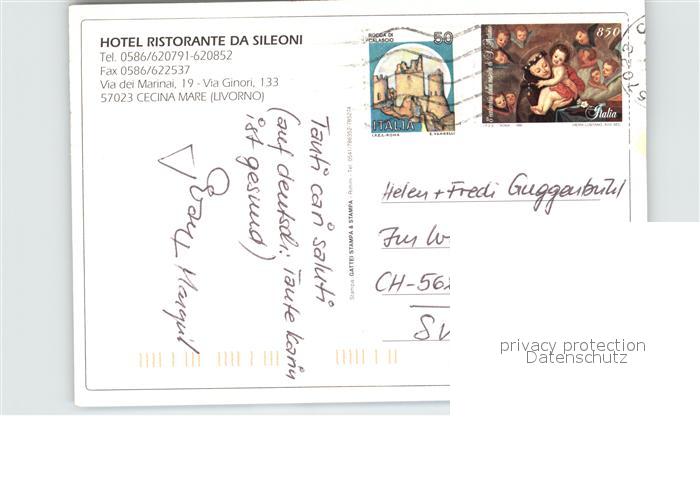 HOTEL RISTORANTE DA SILEONI
Tel. 0586/620791-620852
Fax 0586/622537
Via dei Marinai, 19 - Via Ginori, 133
57023 CECINA MARE (LIVORNO)
ROCCA DI
CALASCIO
50
ITALIA
I.P.Z.S.-ROMA
850
Italia
Tanti cari saluti
(auf deutsch: Tante Karin
ist gesund)
Stampa: GATTEI STAMPA & STAMPA - Rimini - Tel. 0541/786302-786274
Helen + Fredi Guggenbühl
CH-562
privacy protection
Datenschutz